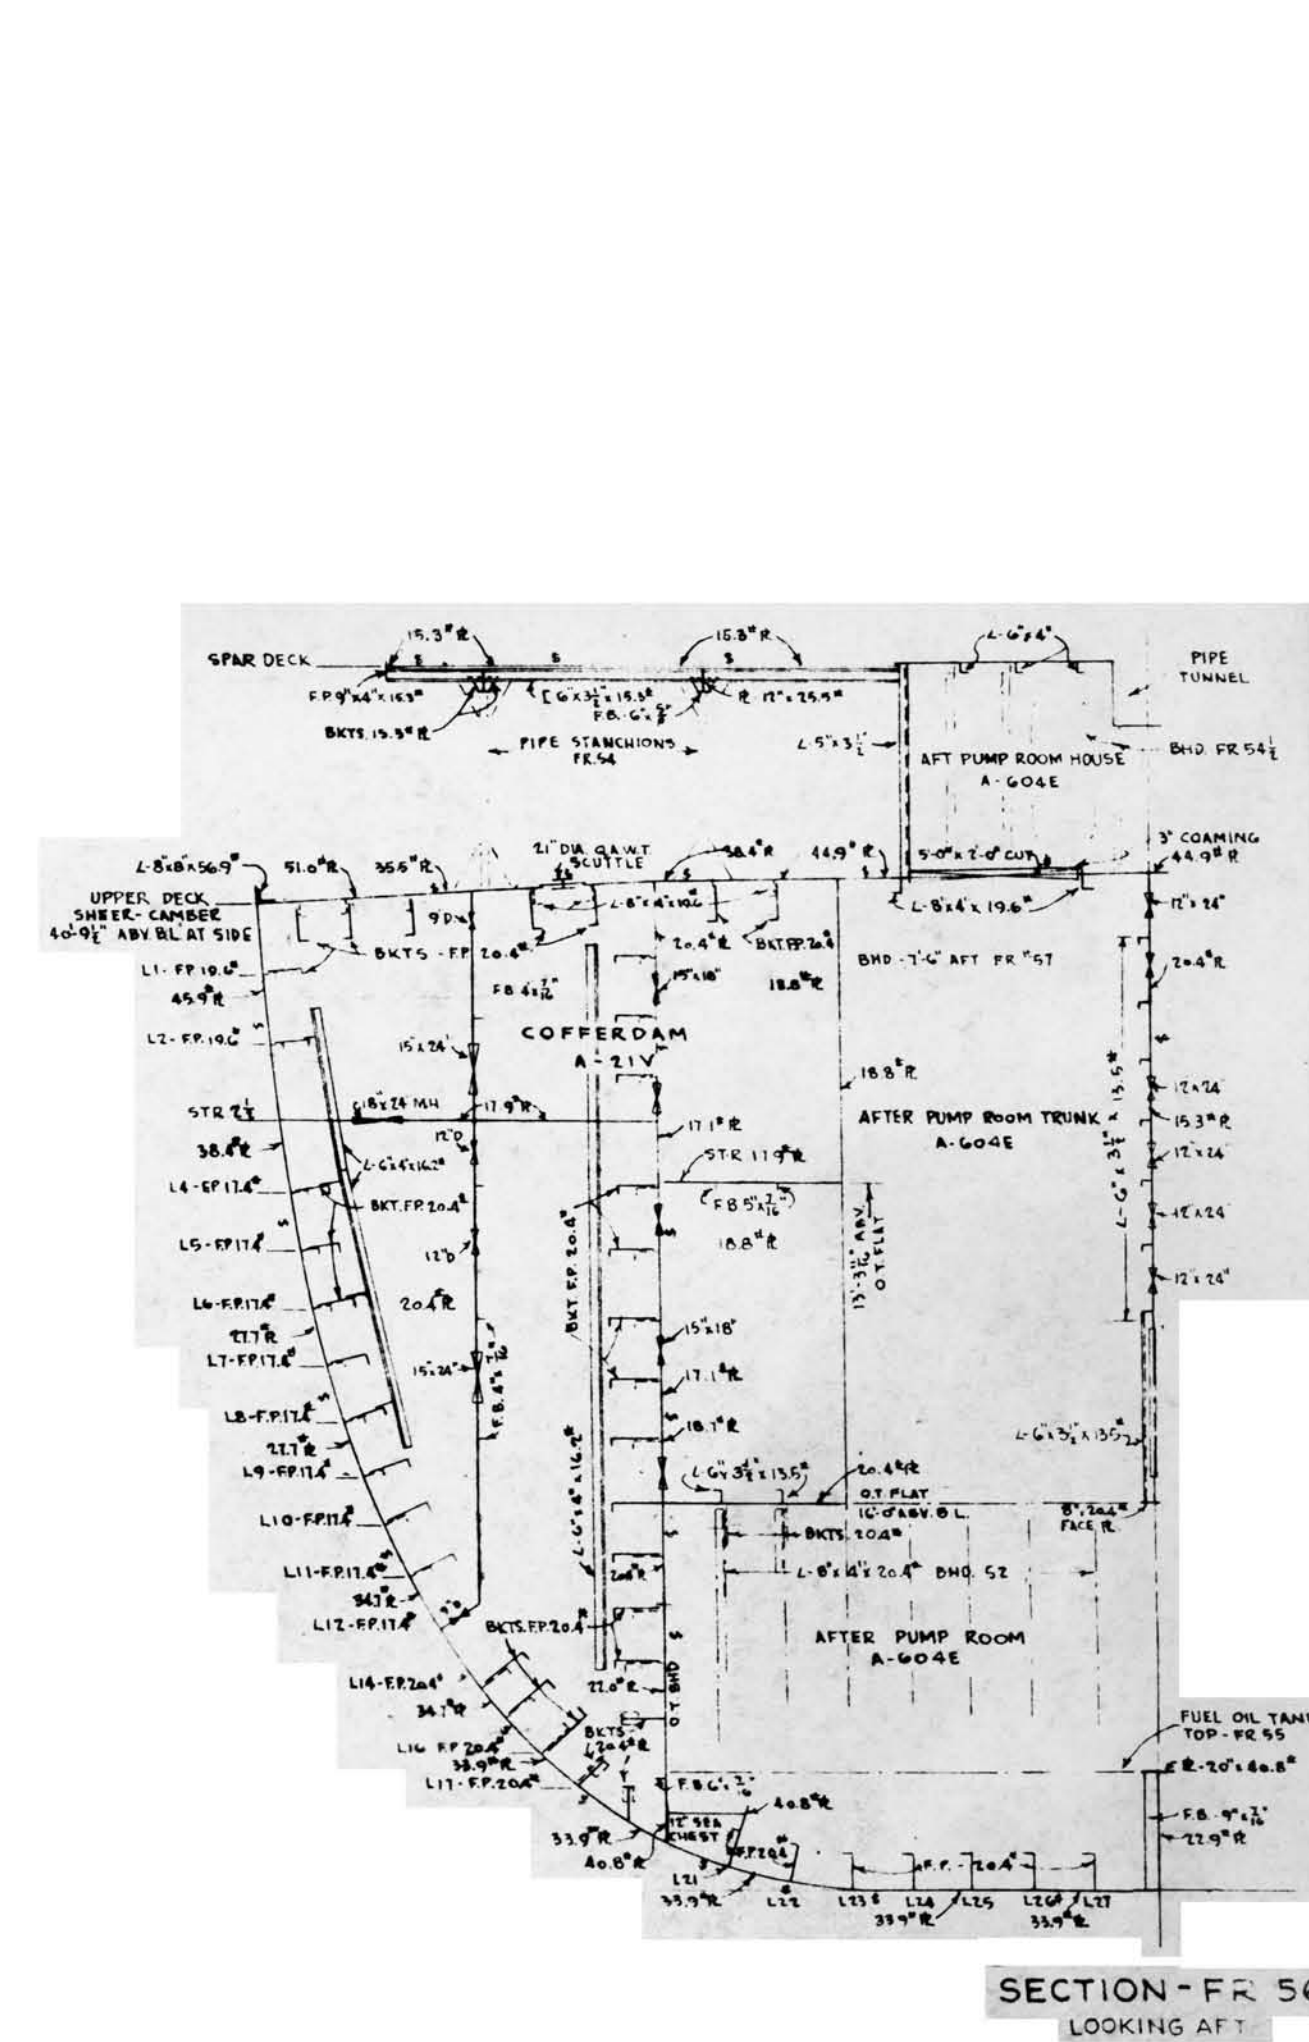 15.3# ℞
15.3# ℞
L-6"x4"
SPAR DECK
PIPE
TUNNEL
F.P. 9"x4"x15.3#
[ 6"x3½"x15.3#
F.B.-6"x⅝"
℞ 12"x25.5#
BKTS. 15.3# ℞
PIPE STANCHIONS
FR.54
L-5"x3½"
AFT PUMP ROOM HOUSE
A-604E
BHD. FR 54½
L-8"x8"x56.9#
51.0# ℞
35.5# ℞
21" DIA. Q.A.W.T.
SCUTTLE
38.4# ℞
44.9# ℞
5'-0" x 2'-0" CUT
3" COAMING
44.9# ℞
UPPER DECK
SHEER-CAMBER
40'-9½" ABV. B.L. AT SIDE
9"D
L-8"x4"x19.6#
L-8"x4"x19.6#
12"x24"
BKTS - F.P. 20.4#
20.4# ℞
BKT. F.P. 20.4
BHD - 7'-6" AFT FR #57
20.4# ℞
L1-F.P. 19.6#
45.9# ℞
F.B. 4"x7/16"
15"x18"
18.8# ℞
L2-F.P. 19.6#
15"x24"
COFFERDAM
A-21V
18.8# ℞
L-6"x3½"x13.5#
12x24
STR 2½
18"x24" MH
17.9# ℞
AFTER PUMP ROOM TRUNK
A-604E
15.3# ℞
38.4# ℞
12"D
17.1# ℞
12"x24"
L-6"x4"x16.2#
STR 17.9# ℞
L4-F.P. 17.4#
BKT. F.P. 20.4#
(F.B. 5"x7/16")
12"x24"
L5-F.P. 17.4#
12"D
BKT. F.P. 20.4#
18.8# ℞
13'-3 11/16" ABV.
O.T. FLAT
12"x24"
L6-F.P. 17.4#
20.4# ℞
27.7# ℞
15"x18"
L7-F.P. 17.4#
15"x24"
F.B. 4"x7/16"
17.1# ℞
L8-F.P. 17.4#
18.7# ℞
27.7# ℞
L-6"x3½"x13.5#
L9-F.P. 17.4#
L-6"x4"x16.2#
L-6"x3½"x13.5#
20.4# ℞
O.T. FLAT
16'-0" ABV. B.L.
8"x20.4#
FACE ℞
L10-F.P. 17.4#
BKTS. 20.4#
L11-F.P. 17.4#
20.4# ℞
L-8"x4"x20.4# BHD. 52
34.7# ℞
L12-F.P. 17.4#
9"D
BKTS. F.P. 20.4#
AFTER PUMP ROOM
A-604E
L14-F.P. 20.4#
22.0# ℞
O.T. BHD
34.7# ℞
FUEL OIL TAN
TOP-FR 55
L16 F.P. 20.4#
BKTS
20.4# ℞
33.9# ℞
℞-20"x40.8#
L17-F.P. 20.4#
F.B. 6"x7/16"
40.8# ℞
F.B.-9"x7/16"
12" SEA
CHEST
22.9# ℞
33.9# ℞
40.8# ℞
F.P. 20.4#
F.P.-20.4#
L21
33.9# ℞
L22
L23
L24
L25
L26
L27
33.9# ℞
33.9# ℞
SECTION-FR 56
LOOKING AFT